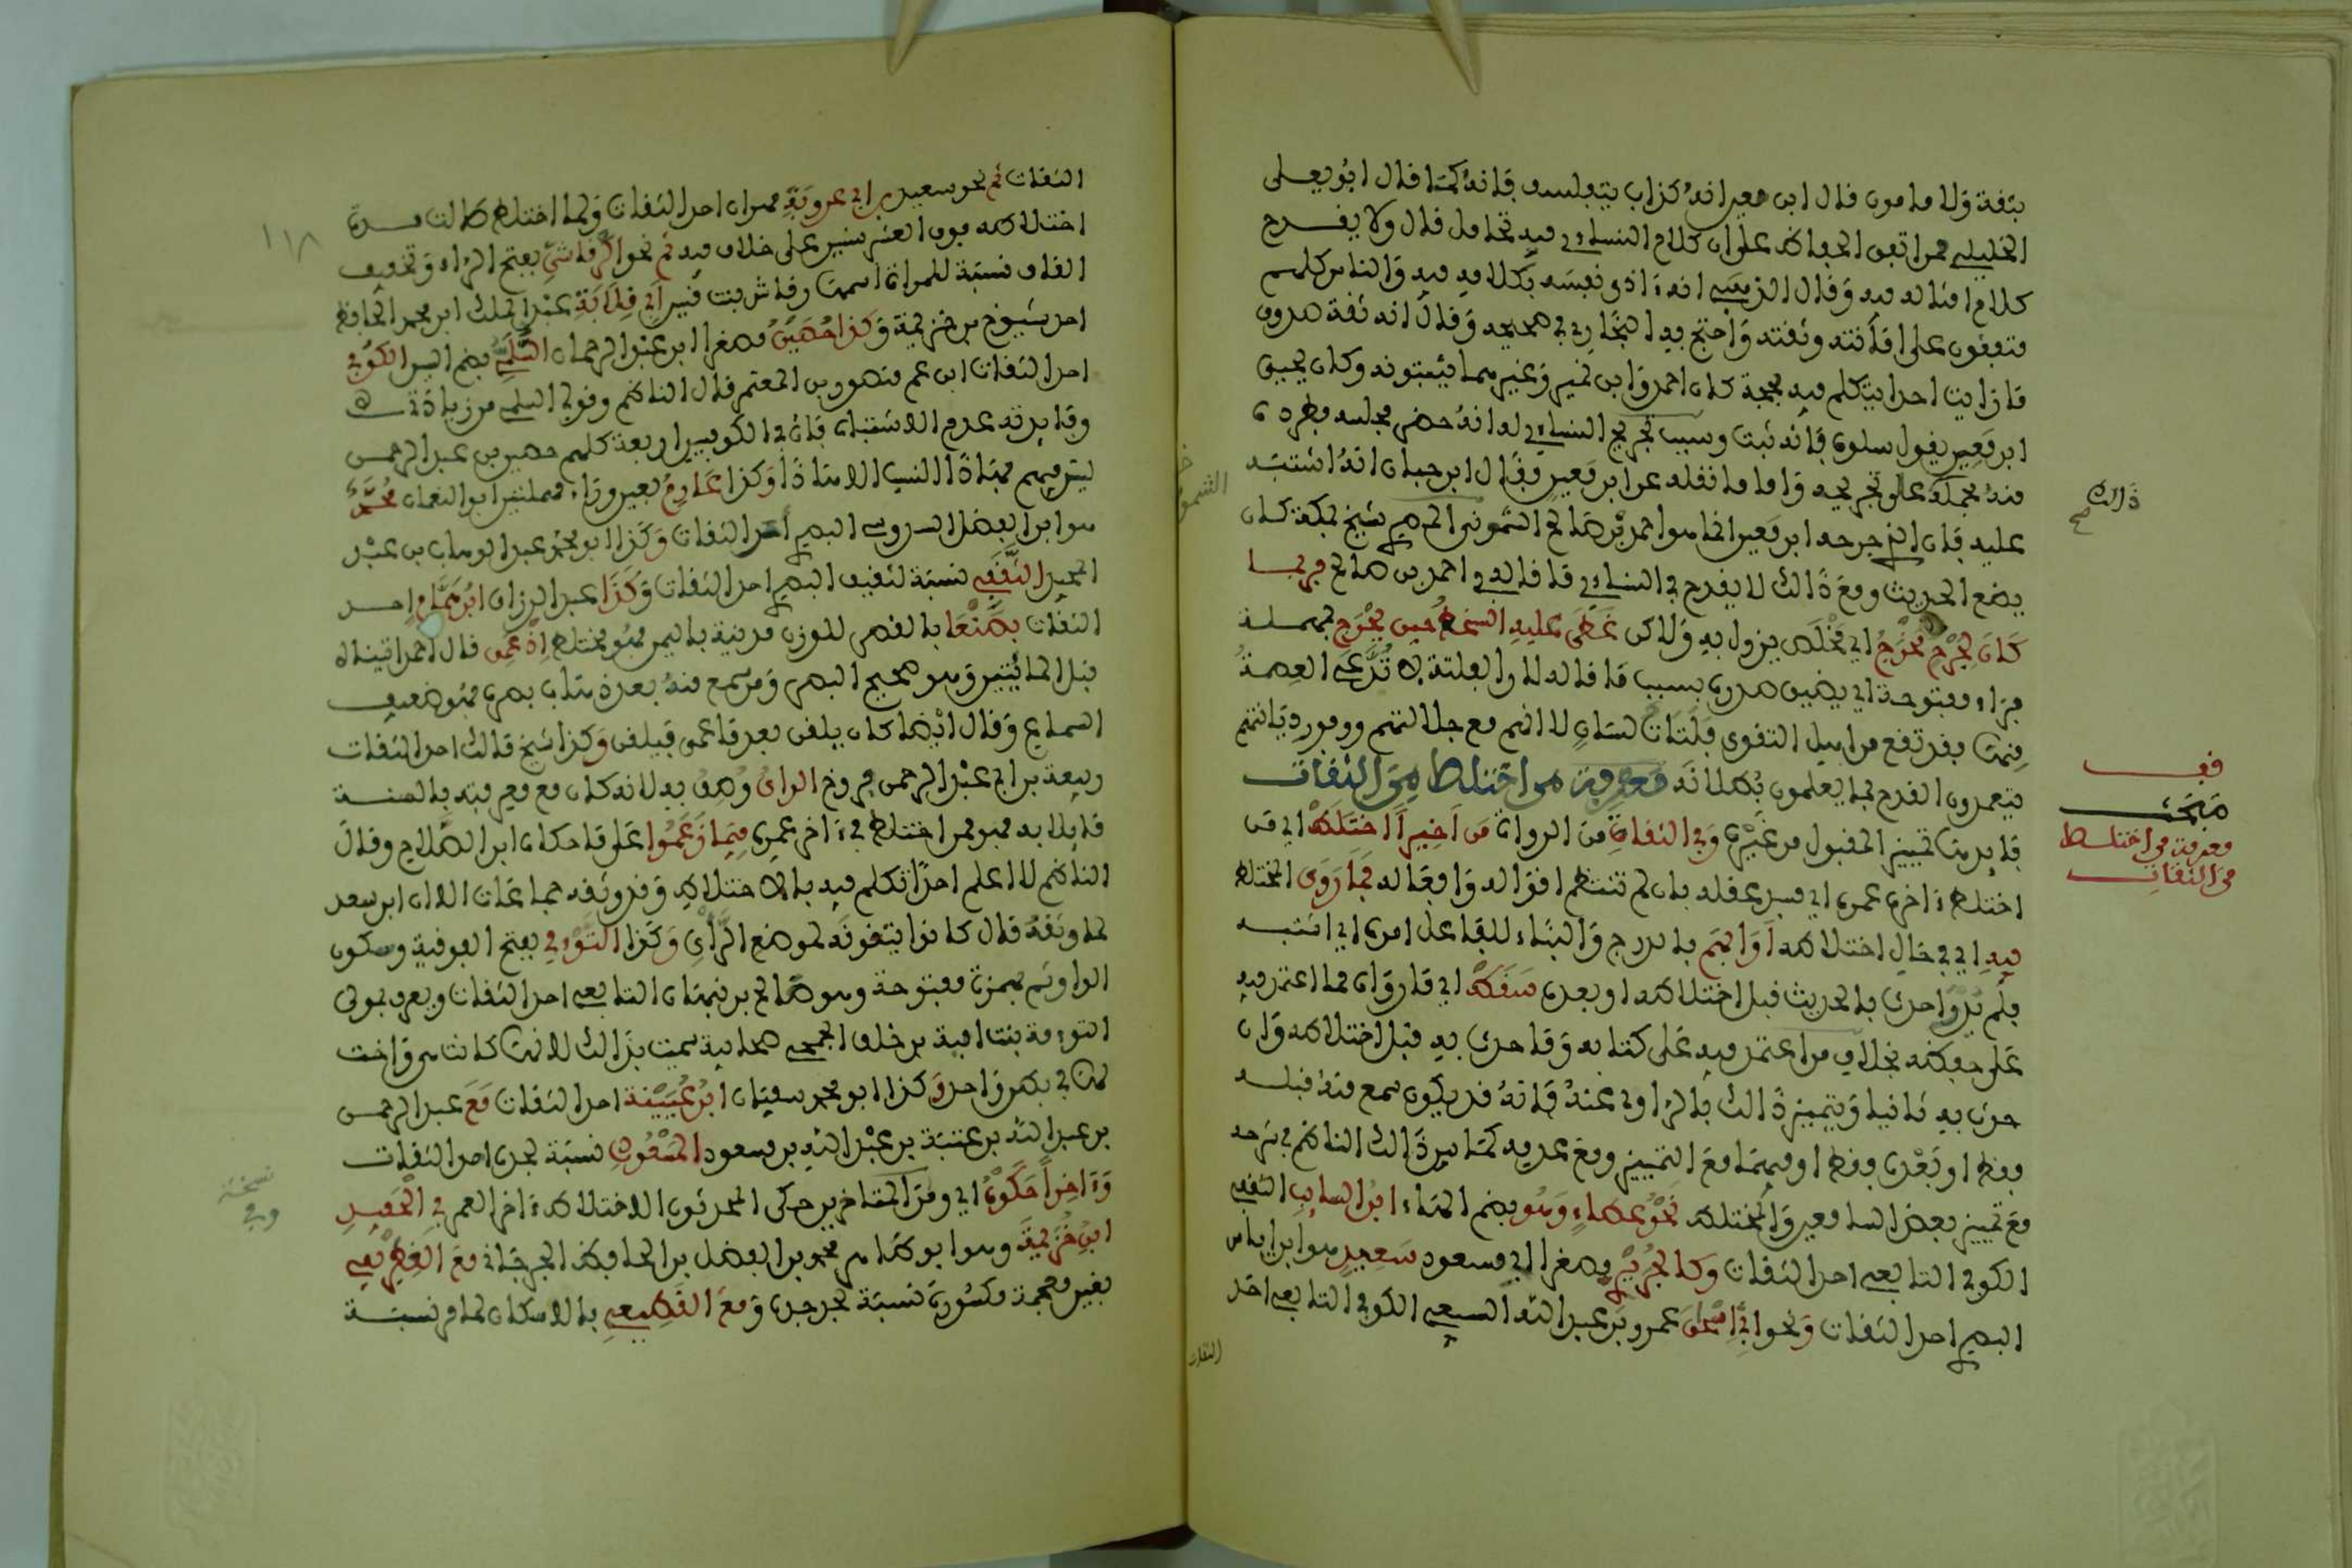 بثقة ولا مامون قال ابن معين انه كذاب يتفلسف فانه كما قال ابو يعلى
الخليلي ممن اتفق الحفاظ على ان كلام النسائي فيه تحامل قال ولا يقدح
كلام امثاله فيه وقال الذهبي انه ءاذى نفسه بكلامه فيه والناس كلهم
متفقون على امامته وثقته واحتج به البخاري في صحيحه وقال انه ثقة صدوق
ما رايت احدا يتكلم فيه بحجة كان احمد وابن نمير وغيرهما يثبتونه وكان يحيى
ابن معين يقول سلوه فانه ثبت وسبب تجريح النسائي له انه حضر مجلسه فطرده
منه فحمله على تجريحه واما ما نقله عن ابن معين فقال ابن حبان انه اشتبه
عليه فان الذي جرحه ابن معين انما هو احمد بن صالح الشمومي المصري شيخ بمكة كان
يضع الحديث ومع ذالك لا يقدح في النسائي ما قاله في احمد بن صالح فربما
كان لجرح مخرج اي مخلص يزول به ولاكن غطى عليه السخط حين يحرج بمهملة
فراء مفتوحة اي يضيق صدره بسبب ما قاله لا
فمن يرتفع من اهل التقوى فلتات لسان لا انهم مع جلالتهم ووفور ديانتهم
يتعمدون القدح بما يعلمون بطلانه معرفة من اختلط من الثقات
فايدته تمييز المقبول من غيره وفي الثقات من الرواة من اخيرا اختلط اي من
اختلط ءاخر عمره اي فسد عقله بان لم تنتظم اقواله وافعاله فما روى المختلط
فيه اي في حال اختلاطه او ابهم بالدرج والبناء للفاعل امره اي اشتبه
فلم يدر احدث بالحديث قبل اختلاطه او بعده سقط اي ما رواه مما اعتمد فيه
على حفظه بخلاف من اعتمد فيه على كتابه وما حدث به قبل اختلاطه وان
حدث به ثانيا ويتميز ذالك بالراوي عنه فانه قد يكون سمع منه قبله
فقط او بعده فقط او فيهما مع التمييز ومع عدمه كما بين ذالك الناظم في شرحه
مع تمييز بعض السامعين والمختلط نحو عطاء وهو بضم الهاء ابن السايب الثقفي
الكوفي التابعي احد الثقات وكالجريري مصغرا ابي مسعود سعيد هو ابن اياس
البصري احد الثقات ونحو ابي اسحق عمرو بن عبد الله السبيعي الكوفي التابعي احد
الثقات
ذالك
صح
قف
مبحث
معرفة من اختلط
من الثقات
الشمو
الثقات ثم نحو سعيد بن ابي عروبة مهران احد الثقات ولما اختلط طالت مدة
اختلاطه فوق العشر سنين على خلاف فيه ثم نحو الرقاشي بفتح الراء وتخفيف
القاف نسبة لامراة اسمها رقاش بنت قيس ابي قلابة عبد الملك ابن محمد الحافظ
احد شيوخ ابن خزيمة وكذا حصين مصغرا ابن عبد الرحمان السلمي بضم السين الكوفي
احد الثقات ابن عم منصور بن المعتمر قال الناظم وقولي السلمي من زيادتي
وفايدته عدم الاشتباه فان في الكوفيين اربعة كلهم حصين بن عبد الرحمن
ليس فيهم بهاذا النسب الا هاذا وكذا عارم بعين وراء مهملتين ابو النعمان محمد
هو ابن الفضل السدوسي البصري احد الثقات وكذا ابو محمد عبد الوهاب بن عبد
المجيد الثقفي نسبة لثقيف البصري احد الثقات وكذا عبد الرزاق ابن همام احد
الثقات بصنعا بالقصر للوزن مدينة باليمن فهو مختلط اذ عمي قال احمد اتيناه
قبل المائتين وهو صحيح البصر ومن سمع منه بعد ذهاب بصره فهو ضعيف
السماع وقال ايضا كان يلقن بعد ما عمي فيتلقن وكذا شيخ مالك احد الثقات
ربيعة بن ابي عبد الرحمن فروخ الراي وصف به لانه كان مع معرفته بالسنة
قايلا به فهو ممن اختلط في ءاخر عمره فيما زعموا على ما حكاه ابن الصلاح وقال
الناظم لا اعلم احدا تكلم فيه بالاختلاط وقد وثقه جماعات الا ان ابن سعد
لما وثقه قال كانوا يتقونه لموضع الراي وكذا التوءمي بفتح الفوقية وسكون
الواو ثم همزة مفتوحة وهو صالح بن نبهان التابعي احد الثقات ويعرف بمولى
التوءمة بنت امية بن خلف الجمحي صحابية سميت بذالك لانها كانت هي واخت
لها في بطن واحد وكذا ابو محمد سفيان ابن عيينة احد الثقات مع عبد الرحمن
بن عبد الله بن عتبة بن عبد الله بن مسعود المسعودي نسبة لجده احد الثقات
وءاخرا حكوه اي ومن المتاخرين حكى المحدثون الاختلاط ءاخر العمر في الحفيد
ابن خزيمة وهو ابو طاهر محمد بن الفضل بن الحافظ الجرجاني مع الغطريفي
بغين معجمة مكسورة نسبة لجد جده ومع القطيعي بالاسكان لما مر نسبة
١١٨
نسخة
وفي